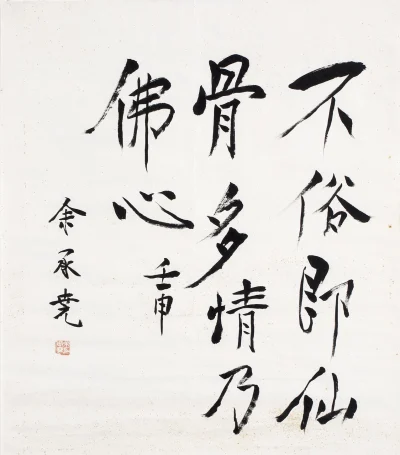 不俗即仙
骨多情乃
佛心
壬申
余承堯